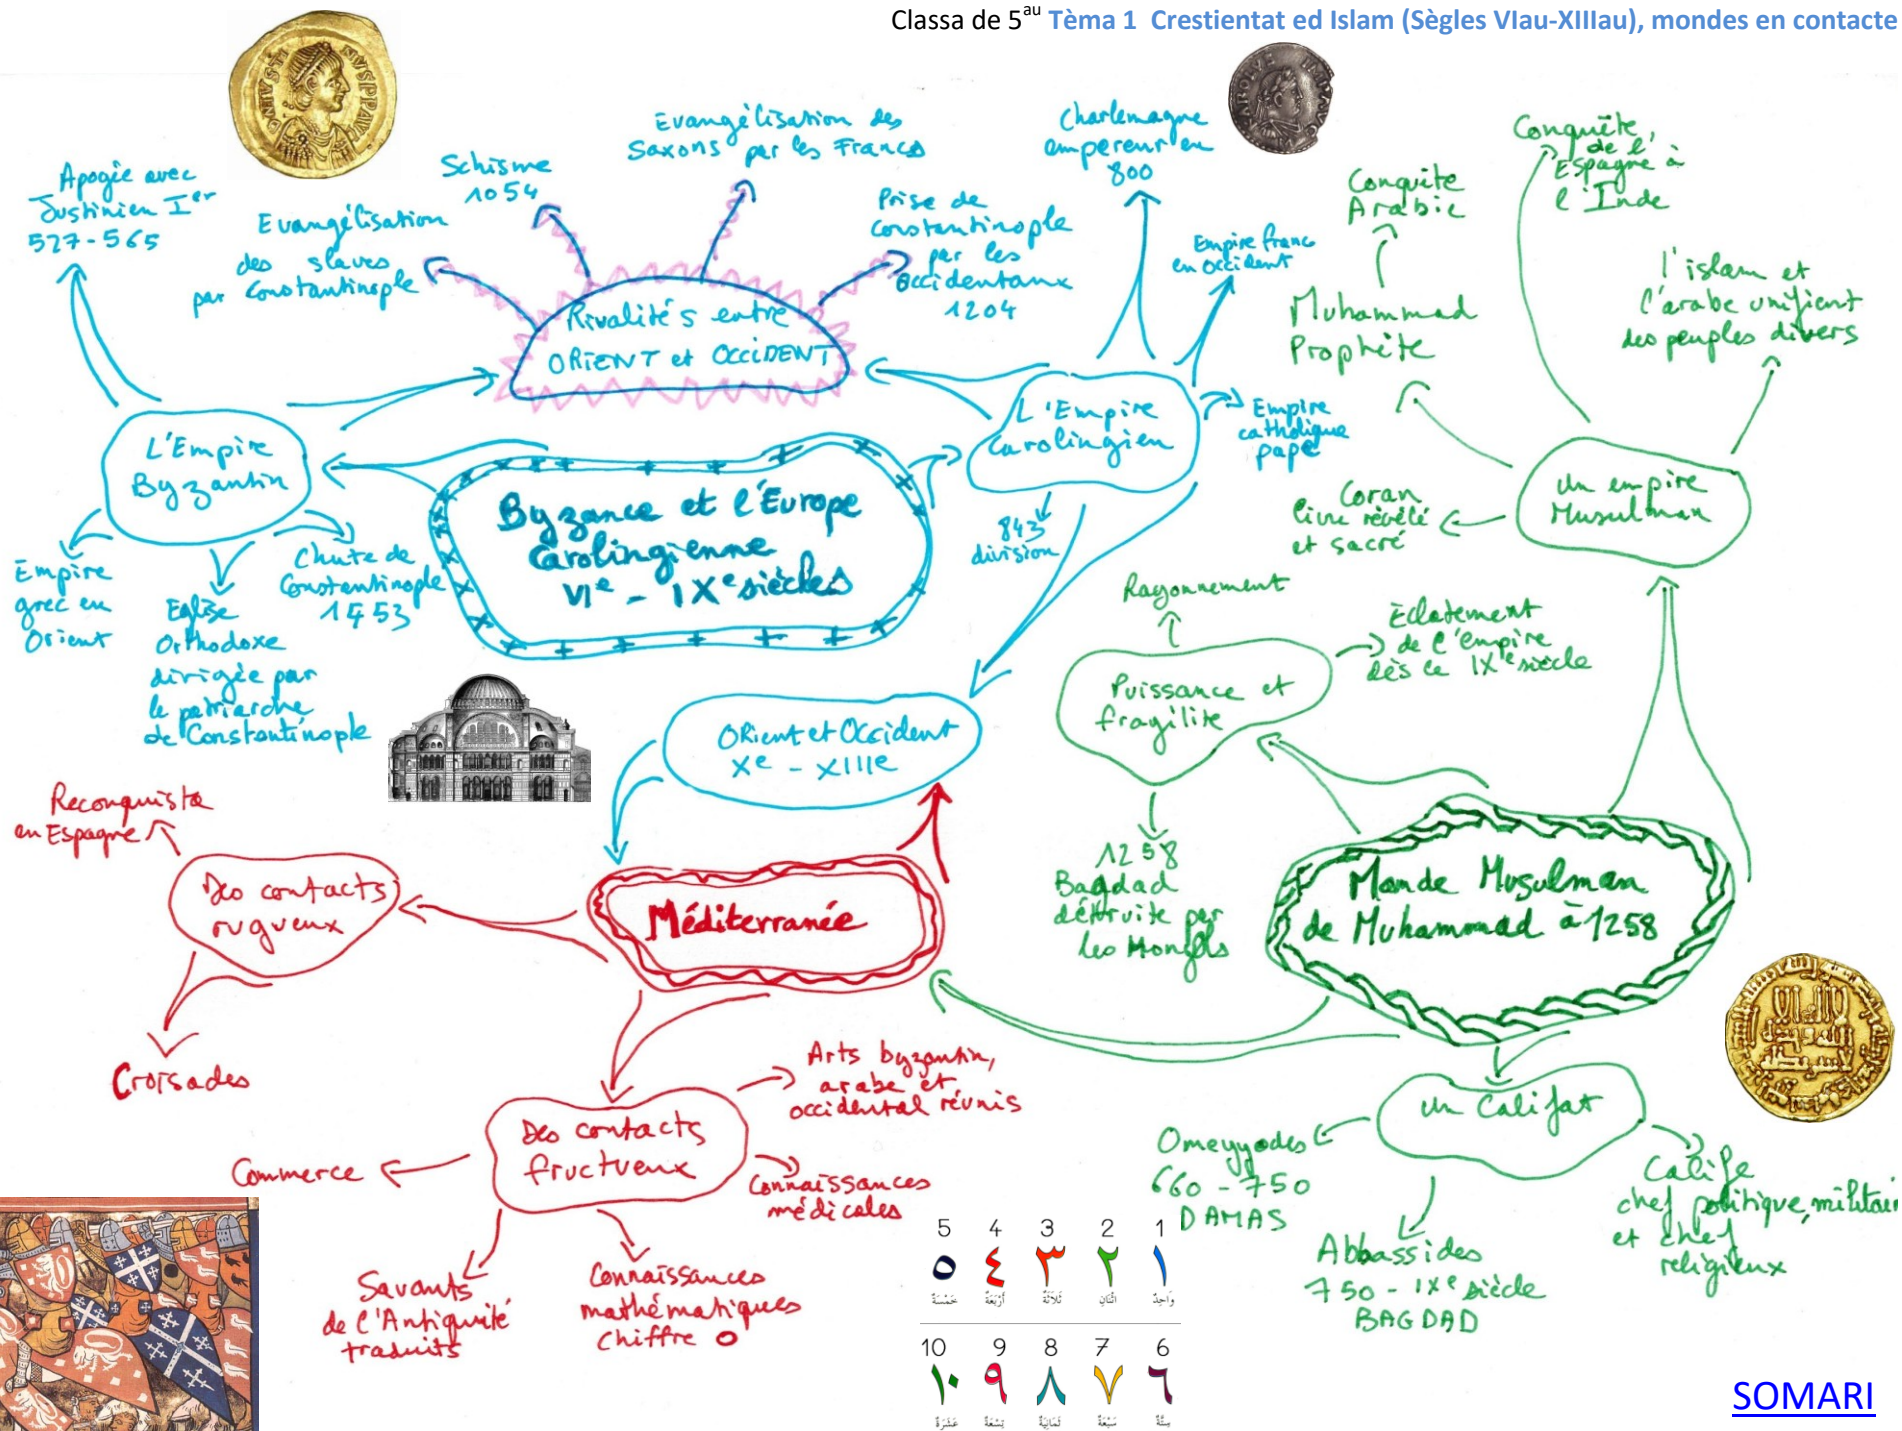 Classa de 5au Tèma 1 Crestientat ed Islam (Sègles VIau-XIIIau), mondes en contacte
Apogée avec
Justinien Ier
527-565
Evangélisation
des slaves
par Constantinople
Schisme
1054
Evangélisation des
Saxons par les Francs
Prise de
Constantinople
par les
Occidentaux
1204
Charlemagne
empereur en
800
Empire franc
en occident
Rivalités entre
ORIENT et OCCIDENT
L'Empire
Byzantin
Empire
grec en
Orient
Eglise
Orthodoxe
dirigée par
le patriarche
de Constantinople
Chute de
Constantinople
1453
Byzance et l'Europe
Carolingienne
VIe - IXe siècles
L'Empire
Carolingien
Empire
catholique
pape
843
division
Orient et Occident
Xe - XIIIe
Conquête
Arabie
Muhammad
Prophète
Conquête,
de l'
Espagne à
l'Inde
l'islam et
l'arabe unifient
des peuples divers
Un empire
Musulman
Coran
livre révélé
et sacré
Rayonnement
Puissance et
fragilité
Eclatement
de l'empire
dès le IXe siècle
1258
Bagdad
détruite par
les Mongols
Monde Musulman
de Muhammad à 1258
Un Califat
Omeyyades
660 - 750
DAMAS
Abbassides
750 - IXe siècle
BAGDAD
Calife
chef politique, militair
et chef
religieux
Méditerranée
Des contacts
rugueux
Reconquista
en Espagne
Croisades
Des contacts
fructueux
Commerce
Arts byzantin,
arabe et
occidental réunis
Connaissances
médicales
Savants
de l'Antiquité
traduits
Connaissances
mathématiques
chiffre 0
5 4 3 2 1
٥ ٤ ٣ ٢ ١
خَمْسَةٌ أَرْبَعَةٌ ثَلَاثَةٌ اثْنَانِ وَاحِدٌ
10 9 8 7 6
١٠ ٩ ٨ ٧ ٦
عَشَرَةٌ تِسْعَةٌ ثَمَانِيَةٌ سَبْعَةٌ سِتَّةٌ
SOMARI